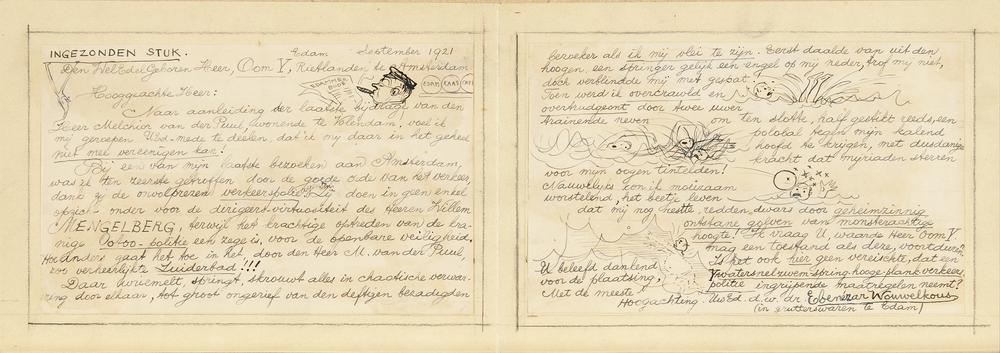 INGEZONDEN STUK.
Edam September 1921
Den WelEdelGeboren Heer, Oom Y, Rietlanden te Amsterdam
EDAMMER BODE
EDAM KAAS
Hooggeachte Heer:
Naar aanleiding der laatste bijdrage van den
Heer Melchior van der Puul, wonende te Volendam! voel ik
mij geroepen U Ed. mede te deelen, dat ik mij daar in het geheel
niet mee vereenigen kan!
Bij een van mijn laatste bezoeken aan Amsterdam,
was ik ten zeerste getroffen door de goede orde van het verkeer,
dank zij de onvolprezen verkeerspolitie. Zij doen in geen enkel
opzicht onder voor de dirigeers-virtuositeit des Heeren Willem
MENGELBERG, terwijl het krachtige optreden van de kra-
nige Ootoo-politie een zege is, voor de openbare veiligheid.
Hoe Anders gaat het toe in het door den Heer M. van der Puul,
zoo verheerlijkte Zuiderbad!!!
Daar wriemelt, springt, skrouwt alles in chaotische verwar-
ring door elkaar, tot groot ongerief van den deftigen bezadigden
bezoeker als ik mij vlei te zijn. Eerst daalde van uit den
hoogen, een springer gelijk een engel op mij neder, trof mij niet,
doch verblindde mij met gespat!
Toen werd ik overcrawld en
overhudgeont door twee uwer
trainende neven
om ten slotte, half gestikt reeds, een
polobal tegen mijn kalend
hoofd te krijgen, met dusdanige
kracht dat myriaden sterren
voor mijn oogen tintelden!
Nauwelijks kon ik moeizaam
worstelend, het beetje leven
dat mij nog restte, redden, dwars door geheimzinnig
ontstane golven van monsterachtige
hoogte! Ik vraag U, waarde Heer Oom Y
mag een toestand als deze, voortduren?
Is het ook hier geen vereischte, dat een
Y watersnelzwemspringhoogeplankverkeers
politie ingrijpende maatregelen neemt?
U beleefd dankend
voor de plaatsing,
Met de meeste
Hoogachting. Uw Ed. d. w. dr. Ebenezar Wouwelkous
(in grutterswaren te Edam)